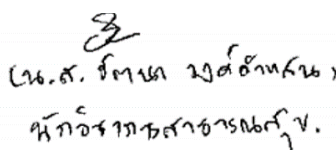 (น.ส. ธิดานา วงค์คำแสน)
นักวิชาการสาธารณสุข.